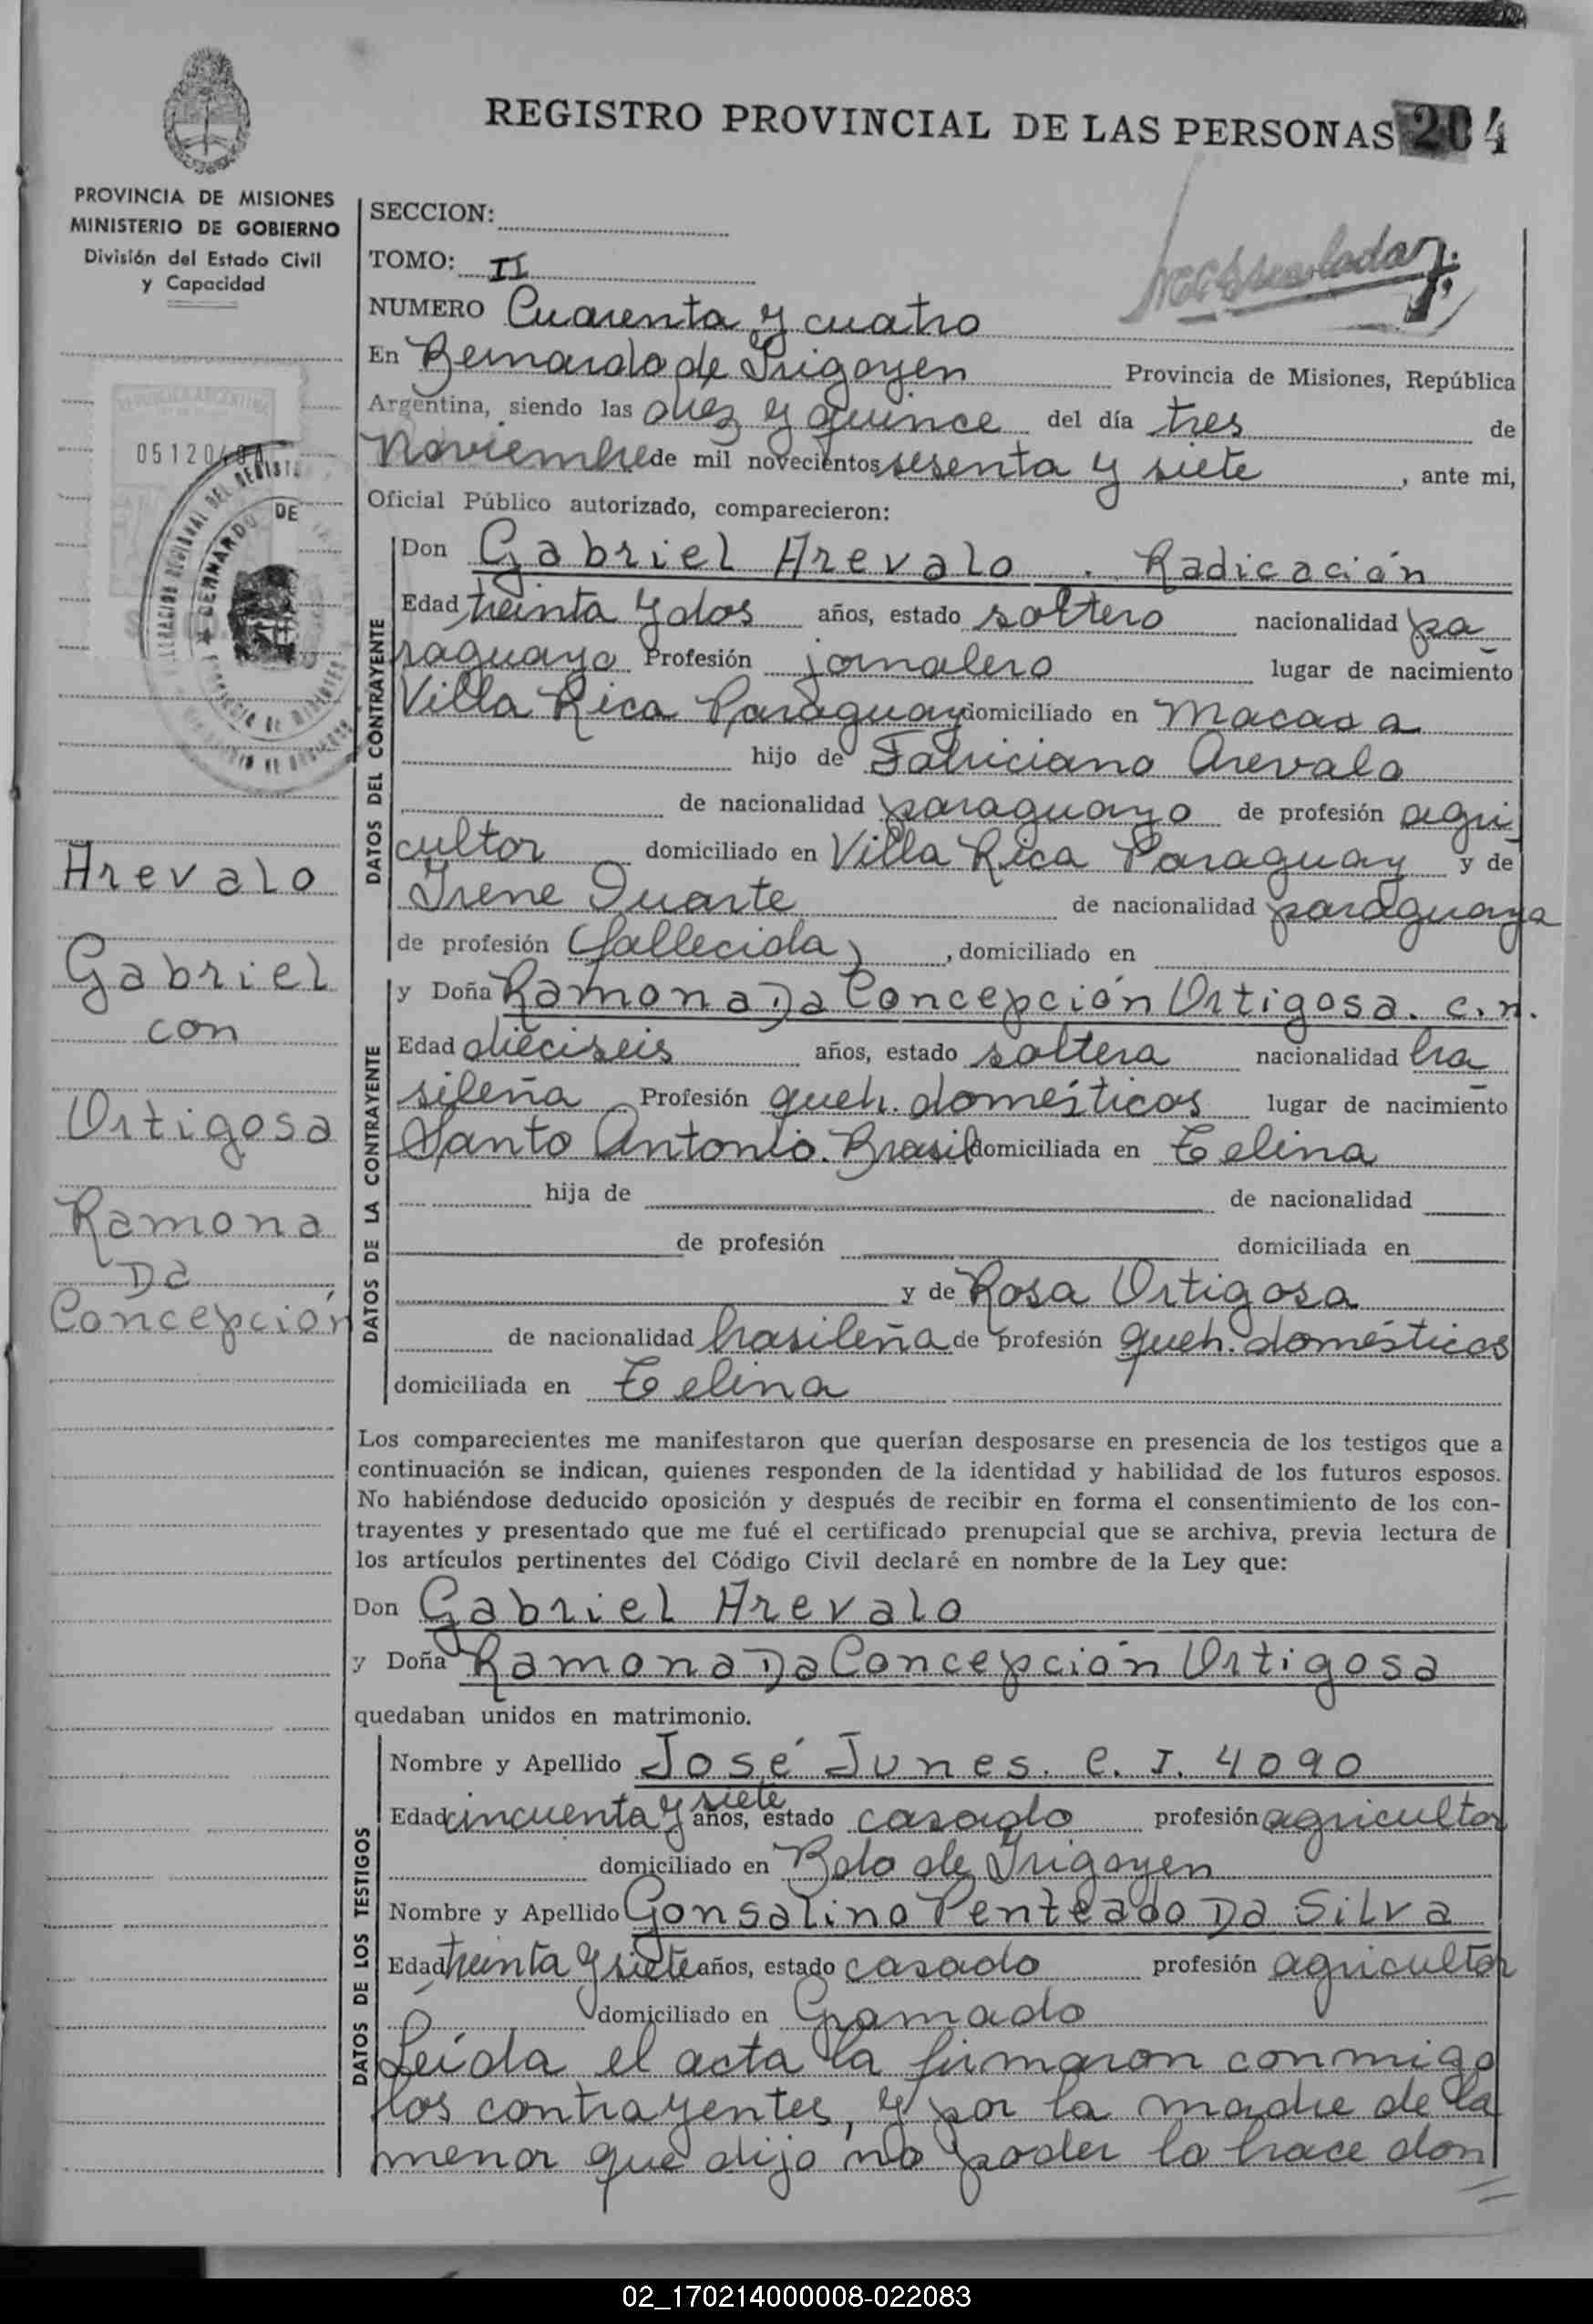 REGISTRO PROVINCIAL DE LAS PERSONAS 204
PROVINCIA DE MISIONES
MINISTERIO DE GOBIERNO
División del Estado Civil
y Capacidad
SECCION:
TOMO: II
NUMERO Cuarenta y cuatro
En Bernardo de Irigoyen Provincia de Misiones, República
Argentina, siendo las diez y quince del día tres de
Noviembre de mil novecientos sesenta y siete, ante mi,
Oficial Público autorizado, comparecieron:
051204
DATOS DEL CONTRAYENTE
Don Gabriel Arevalo. Radicación
Edad treinta y dos años, estado soltero nacionalidad pa
raguayo Profesión jornalero lugar de nacimiento
Villa Rica Paraguay domiciliado en Macaca
hijo de Arevalo
de nacionalidad paraguayo de profesión agri
cultor domiciliado en Villa Rica Paraguay y de
Irene Duarte de nacionalidad paraguaya
de profesión (fallecida), domiciliado en
Arevalo
Gabriel
con
Ortigosa
Ramona
Da
Concepción
DATOS DE LA CONTRAYENTE
y Doña Ramona Da Concepción Ortigosa. C. N.
Edad dieciseis años, estado soltera nacionalidad bra
sileña Profesión queh. domésticos lugar de nacimiento
Santo Antonio. Brasil domiciliada en Celina
hija de de nacionalidad
de profesión domiciliada en
y de Rosa Ortigosa
de nacionalidad brasileña de profesión queh. domésticos
domiciliada en Celina
Los comparecientes me manifestaron que querían desposarse en presencia de los testigos que a
continuación se indican, quienes responden de la identidad y habilidad de los futuros esposos.
No habiéndose deducido oposición y después de recibir en forma el consentimiento de los con-
trayentes y presentado que me fué el certificado prenupcial que se archiva, previa lectura de
los artículos pertinentes del Código Civil declaré en nombre de la Ley que:
Don Gabriel Arevalo
y Doña Ramona Da Concepción Ortigosa
quedaban unidos en matrimonio.
DATOS DE LOS TESTIGOS
Nombre y Apellido José Junes. C. I. 4090
Edad cincuenta y siete años, estado casado profesión agricultor
domiciliado en Bdo de Irigoyen
Nombre y Apellido Gonsalino Penteado Da Silva
Edad treinta y siete años, estado casado profesión agricultor
domiciliado en Gramado
Leída el acta la firmaron conmigo
los contrayentes, y por la madre de la
menor que dijo no poder lo hace don
02_170214000008-022083